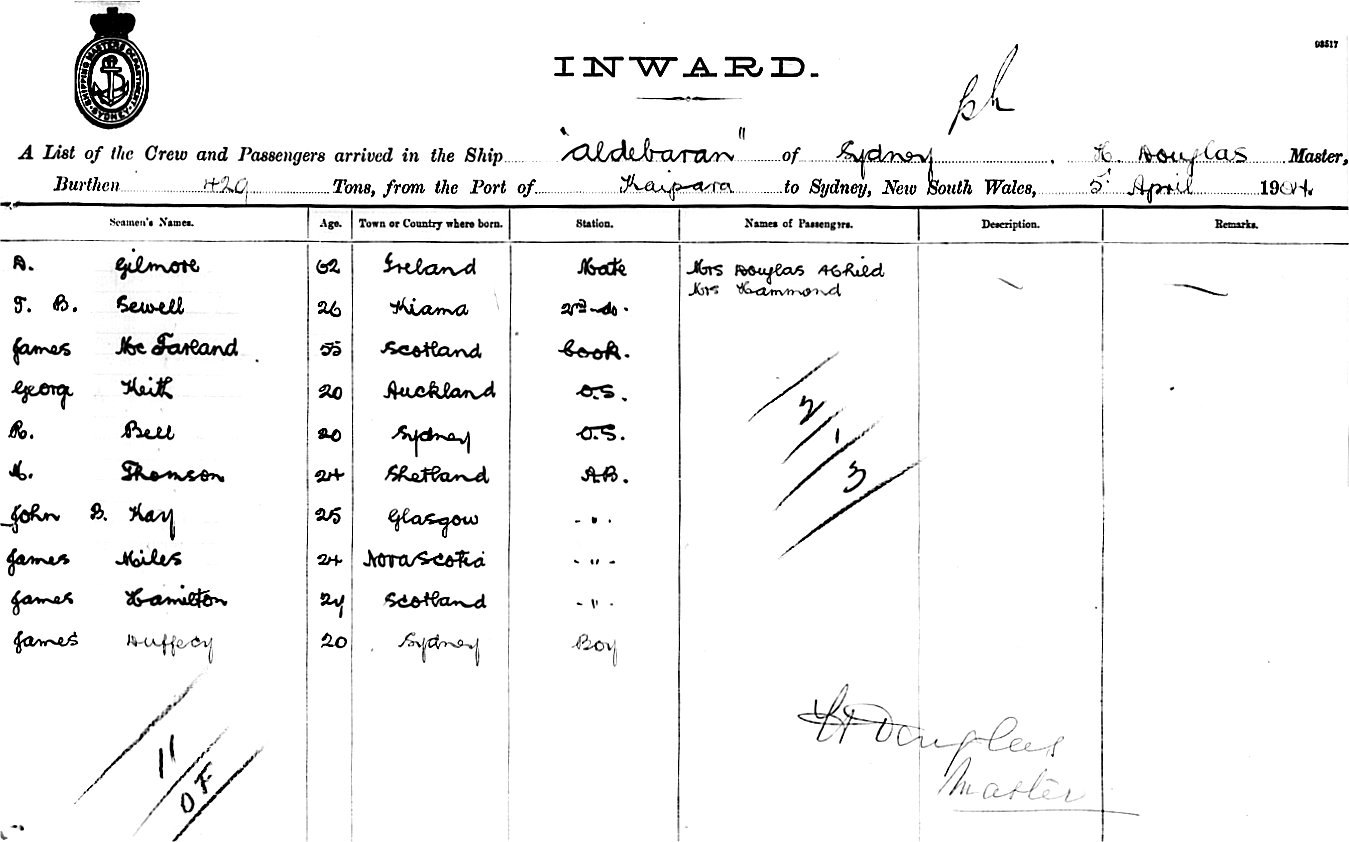 SHIPPING MASTERS DEPARTMENT SYDNEY
98517
INWARD.
A List of the Crew and Passengers arrived in the Ship "Aldebaran" of Sydney . H. Douglas Master,
Burthen 429 Tons, from the Port of Kaipara to Sydney, New South Wales, 5 April 1904.
Seamen's Names. Age. Town or Country where born. Station. Names of Passengers. Description. Remarks.
D. Gilmore 62 Ireland Mate Mrs Douglas & Child
Mrs Hammond
T. B. Sewell 26 Kiama 2nd do.
James Mc Farland 55 Scotland Cook.
George Keith 20 Auckland O.S.
R. Bell 20 Sydney O.S.
2
1
3
Thomson 24 Shetland A.B.
John B. Kay 25 Glasgow - " -
James Miles 24 Nova Scotia - " -
James Hamilton 24 Scotland - " -
James Duffecy 20 Sydney Boy
11
O F
H Douglas
Master